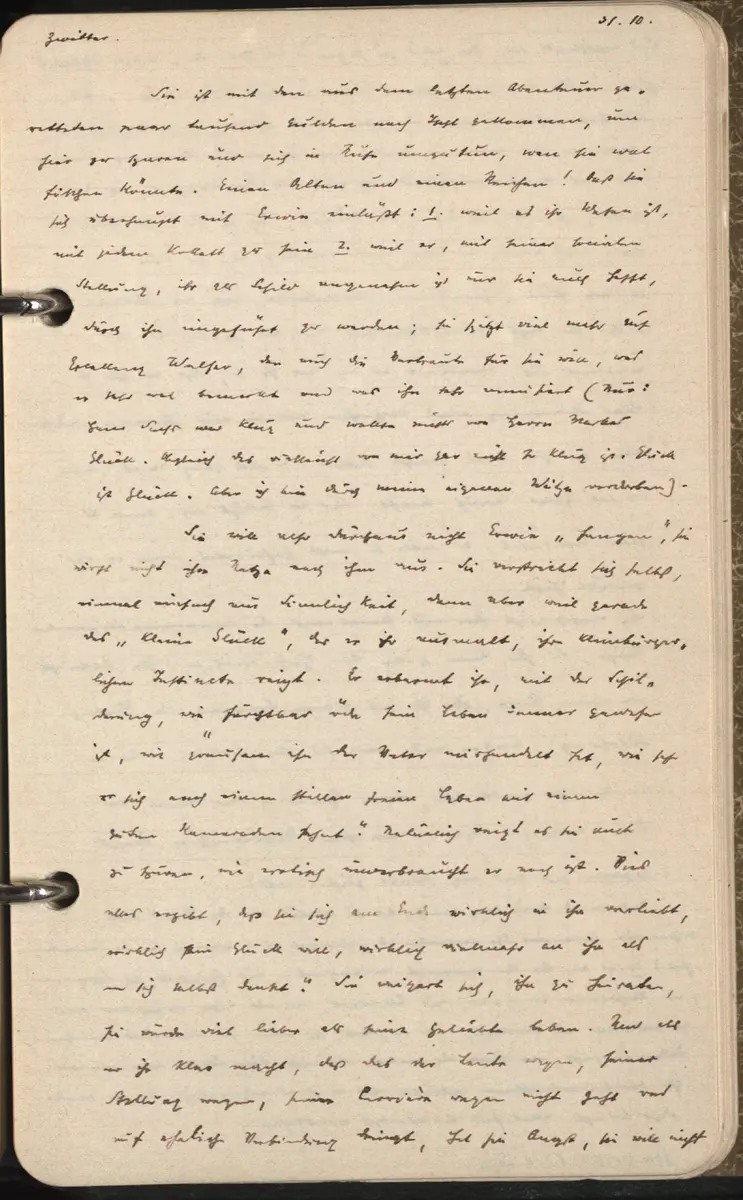 Zwitter.
31.10.
Sie ist mit den aus dem letzten Abenteuer ge-
retteten paar tausend Gulden nach Ischl gekommen, um
hier zu sparen und sich in Ruhe umzutun, wen sie wol
fischen könnte. Einen Alten und einen Reichen! Daß sie
sich überhaupt mit Erwin einläßt: 1. weil es ihr Wesen ist,
mit jedem kokett zu sein 2. weil er, mit seiner socialen
Stellung, ihr als Schild angenehm ist und sie auch hofft,
durch ihn eingeführt zu werden; sie spitzt viel mehr auf
Excellenz Walser, den auch die Vertraute für sie will, was
er sehr wol bemerkt und was ihn sehr amusiert (Nur:
Hans Sachs war klug und wollte nichts von Herrn Markes
Glück. Obgleich das vielleicht von mir gar nicht so klug ist. Glück
ist Glück. Aber ich bin durch meine eigenen Witze verdorben).-
Sie will also durchaus nicht Erwin „fangen", sie
wirft nicht ihre Netze nach ihm aus. Sie verstrickt sich selbst,
einmal einfach aus Sinnlichkeit, dann aber weil gerade
das „kleine Glück", das er ihr ausmalt, ihre kleinbürger-
lichen Instincte reizt. Er erbarmt ihr, mit der Schil-
derung, wie furchtbar öde sein Leben immer gewesen
ist, wie grausam ihn der Vater mishandelt hat, wie sehr
er sich nach einem stillen freien Leben mit einem
guten Kameraden sehnt. Natürlich reizt es sie auch
zu spüren, wie erotisch unverbraucht er noch ist. Dies
alles ergibt, daß sie sich am Ende wirklich in ihn verliebt,
wirklich sein Glück will, wirklich vielmehr an ihn als
an sich selbst denkt. Sie weigert sich, ihn zu heiraten,
sie würde viel lieber als seine Geliebte leben. Und als
er ihr klar macht, daß das der Leute wegen, seiner
Stellung wegen, seiner Carrière wegen nicht geht und
auf eheliche Verbindung dringt, hat sie Angst, sie will nicht